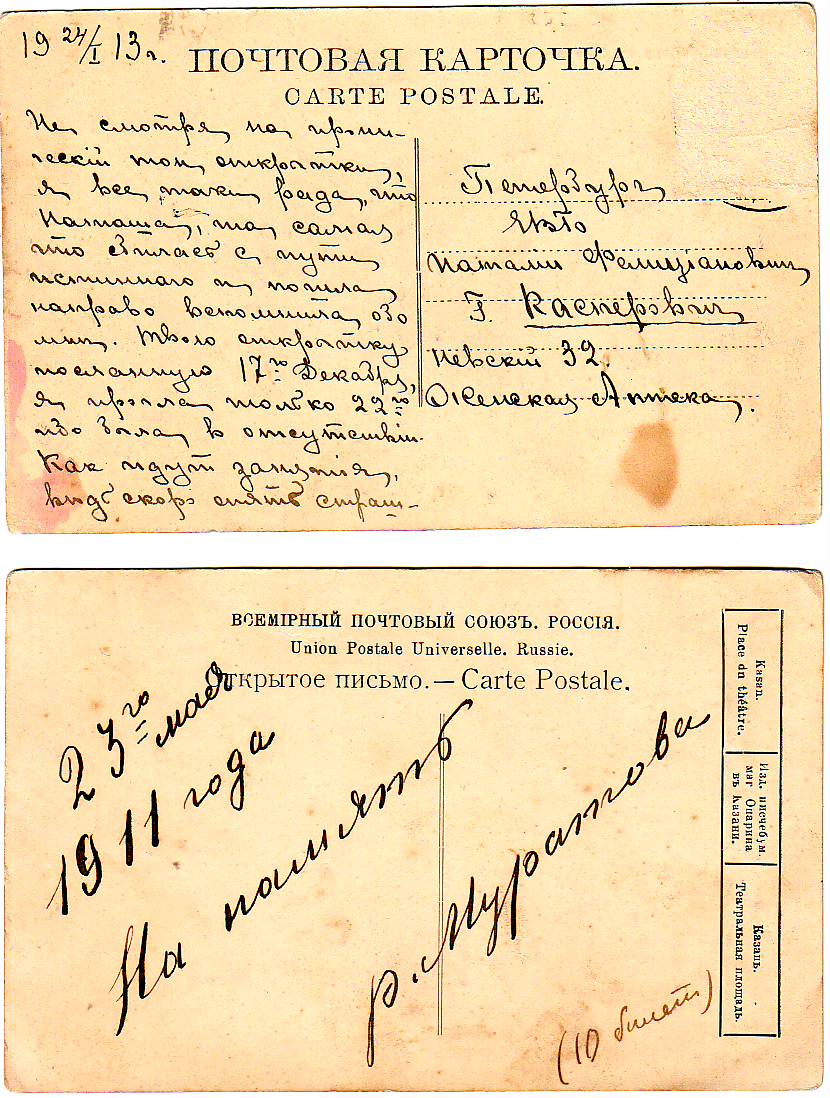 19 24/I 13 г.
ПОЧТОВАЯ КАРТОЧКА.
CARTE POSTALE.
Не смотря на ирони-
ческій тон открытки,
я все таки рада, что
Наташа, та самая
что с пути
истиннаго и пошла
направо вспомнила обо
мне. Твою открытку
посланную 17го Декабря,
я только 22го
ибо была в отсутствіи.
Как идут занятія,
ведь скоро опять страш-
Петербург
Наталіи Фелиціановны
Г. Касперович
Невскій 32.
Женская Аптека.
ВСЕМІРНЫЙ ПОЧТОВЫЙ СОЮЗЪ. РОССІЯ.
Union Postale Universelle. Russie.
Открытое письмо. — Carte Postale.
23го мая
1911 года
На память
Р. Муратова
(10 билет)
Kasan.
Place du théâtre.
Изд. писчебум.
маг Опарина
въ Казани.
Казань.
Театральная площадь.